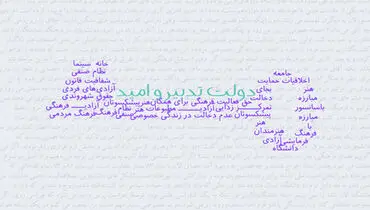 خانه سینما
نظام صنفی
شفافیت قانون
آزادی‌های فردی
حقوق شهروندی
دولت تدبیر و امید
جامعه
اخلاقیات حمایت
هنر بجای
مبارزه دخالت
باسانسور تمرکززدایی
حق فعالیت فرهنگی برای همگان
هنر پیشکسوتان آزادی فرهنگی
آزادی مطبوعات هنر نظام
مبارزه پیشکسوتان عدم دخالت در زندگی خصوصی
صنفی فرهنگ فرهنگ مردمی
با هنر
فرهنگ هنرمندان
فرمایشی آزادی
دانشگاه